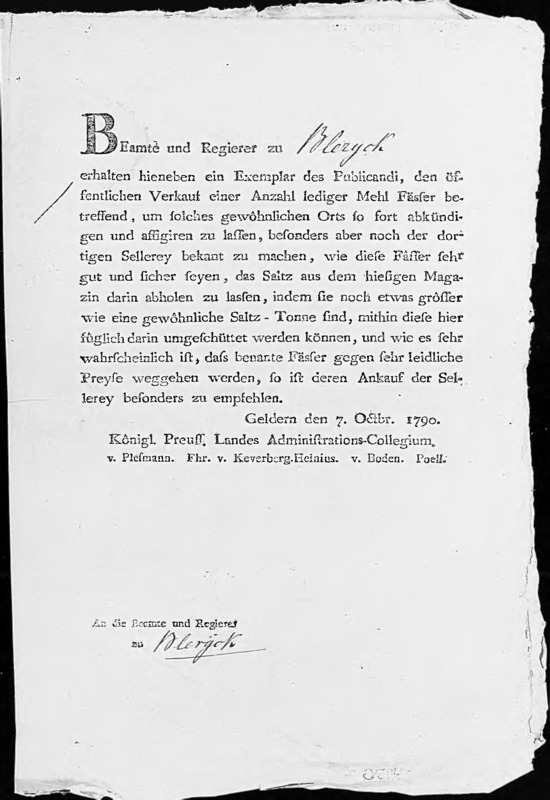 BEamtè und Regierer zu Bleryck
erhalten hieneben ein Exemplar des Publicandi, den öf-
fentlichen Verkauf einer Anzahl lediger Mehl Fässer be-
treffend, um solches gewöhnlichen Orts so fort abkündi-
gen und affigiren zu lassen, besonders aber noch der dor-
tigen Sellerey bekant zu machen, wie diese Fässer sehr
gut und sicher seyen, das Saltz aus dem hiesigen Maga-
zin darin abholen zu lassen, indem sie noch etwas grösser
wie eine gewöhnliche Saltz-Tonne sind, mithin diese hier
füglich darin umgeschüttet werden können, und wie es sehr
wahrscheinlich ist, dass benante Fässer gegen sehr leidliche
Preyse weggehen werden, so ist deren Ankauf der Sel-
lerey besonders zu empfehlen.
Geldern den 7. Octbr. 1790.
Königl. Preuss. Landes Administrations-Collegium.
v. Plesmann. Fhr. v. Keverberg. Heinius. v. Boden. Poell.
An die Beemte und Regierer
zu Blerÿck